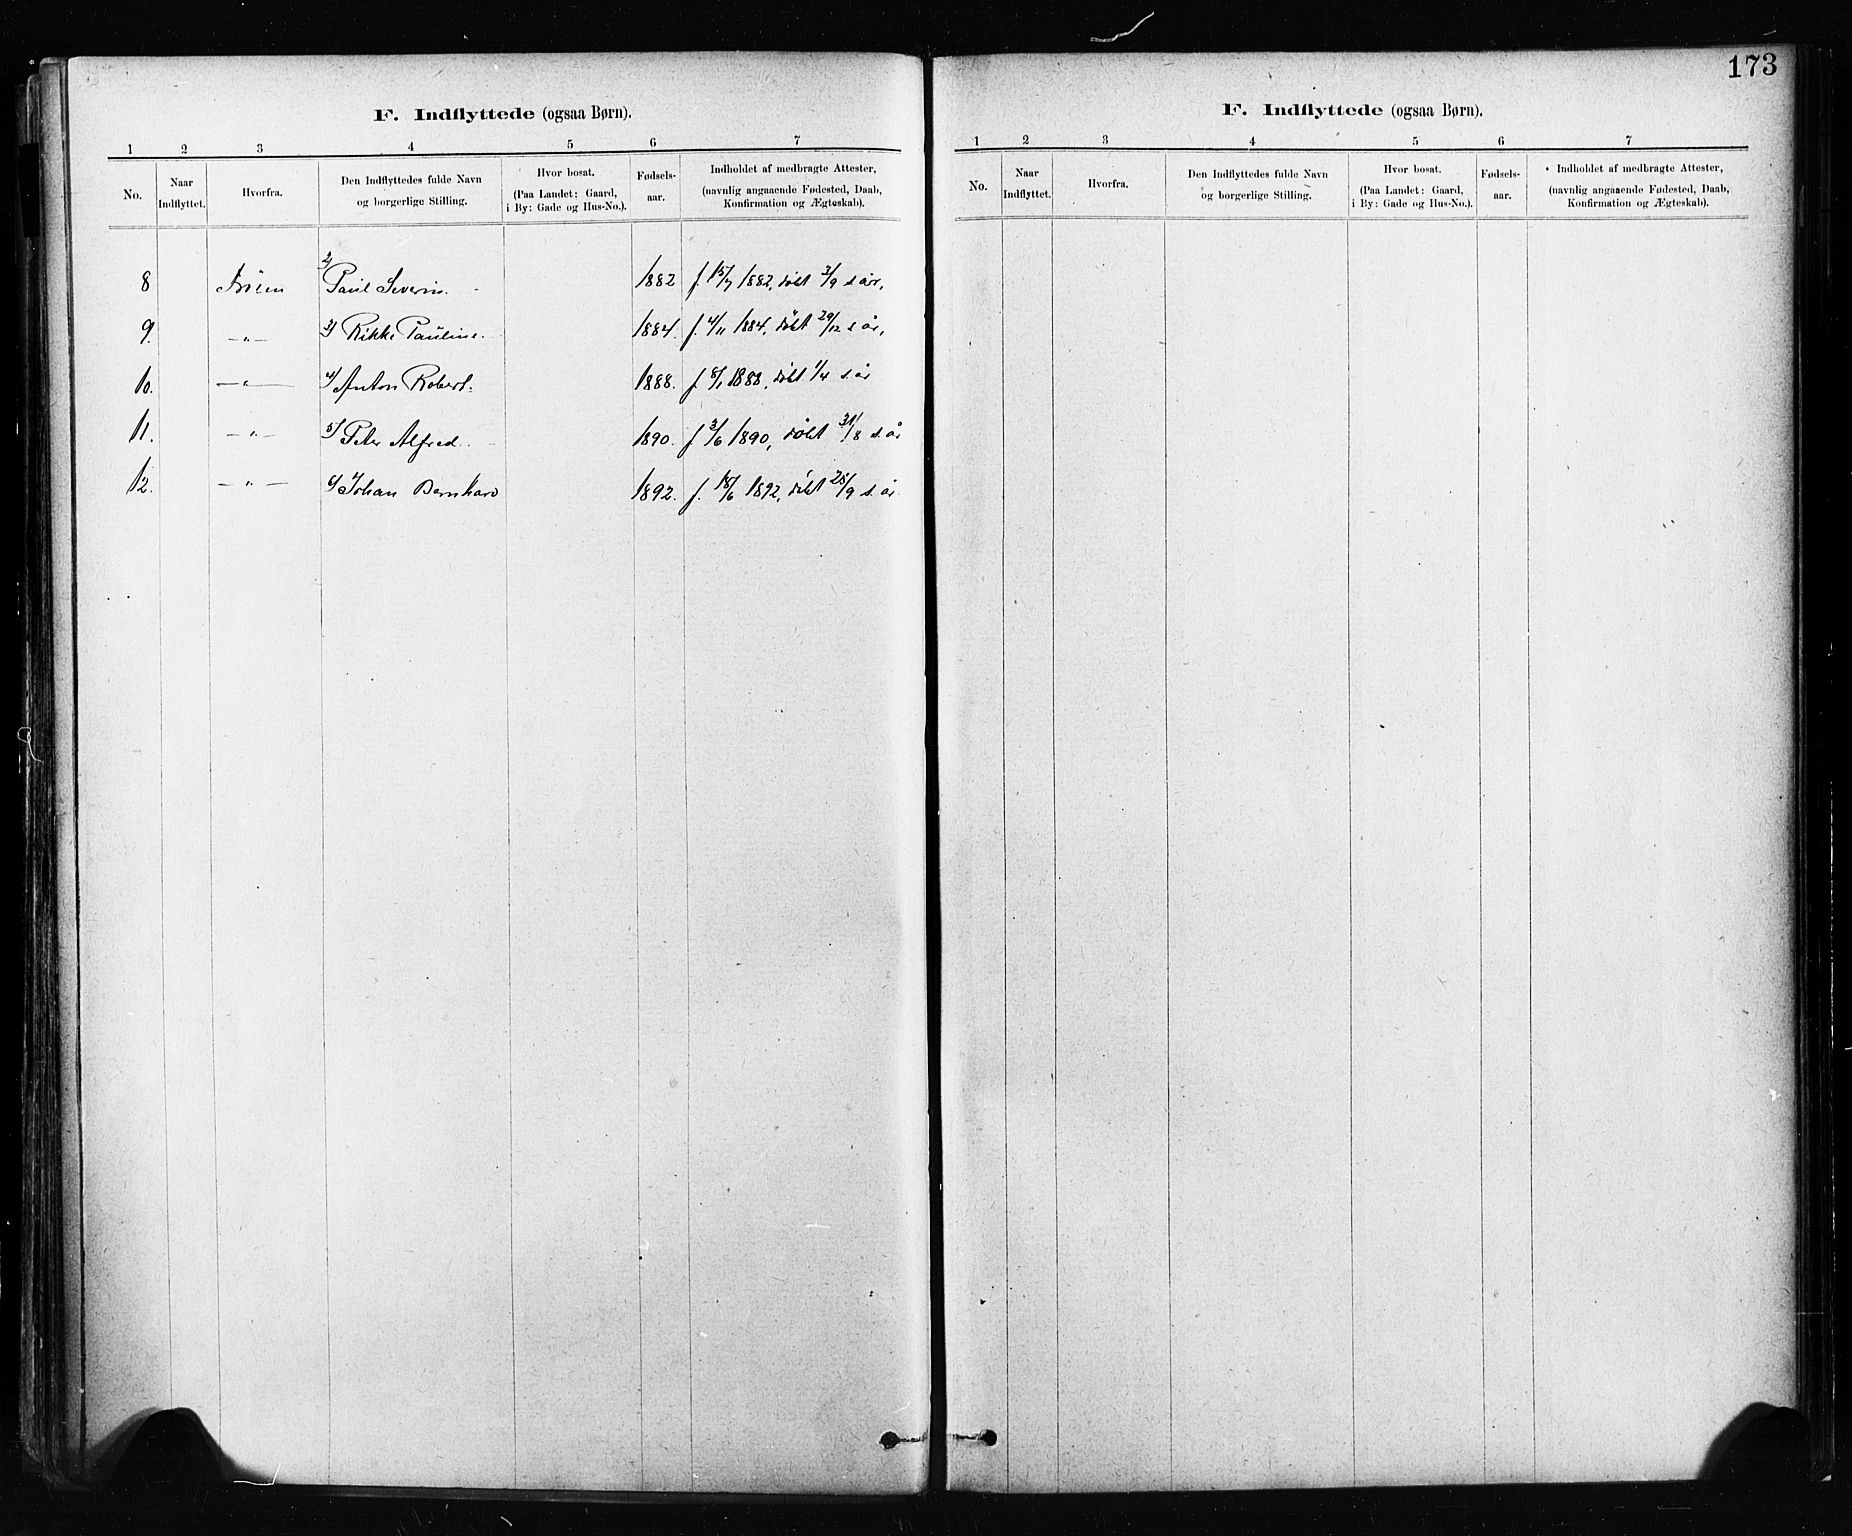 173
F. Indflyttede (ogsaa Børn).
1 2 3 4 5 6 7
No. Naar Indflyttet. Hvorfra. Den Indflyttedes fulde Navn og borgerlige Stilling. Hvor bosat. (Paa Landet: Gaard, i By: Gade og Hus-No.). Fødsels-aar. Indholdet af medbragte Attester, (navnlig angaaende Fødested, Daab, Konfirmation og Ægteskab).
8 2/ Paul Severin. 1882 f. 15/7 1882, døbt 3/9 s. år,
9. -"- 3/ Rikke Pauline. 1884. f. 4/11 1884, døbt 29/12 s. år,
10. -"- 4/ Anton Robert. 1888. f. 8/1 1888, døbt 1/4 s. år
11. -"- 5/ Peter Alfred. 1890. f. 3/6 1890, døbt 31/8 s. år
12. -"- 6/ Johan Bernhard 1892. f. 18/6 1892, døbt 25/9 s. år.
F. Indflyttede (ogsaa Børn).
1 2 3 4 5 6 7
No. Naar Indflyttet. Hvorfra. Den Indflyttedes fulde Navn og borgerlige Stilling. Hvor bosat. (Paa Landet: Gaard, i By: Gade og Hus-No.). Fødsels-aar. Indholdet af medbragte Attester, (navnlig angaaende Fødested, Daab, Konfirmation og Ægteskab).